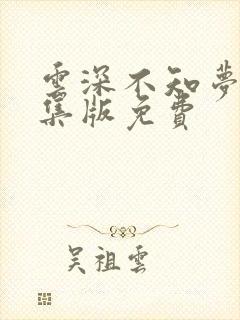 雲深不知夢
集版免費
吳祖雲